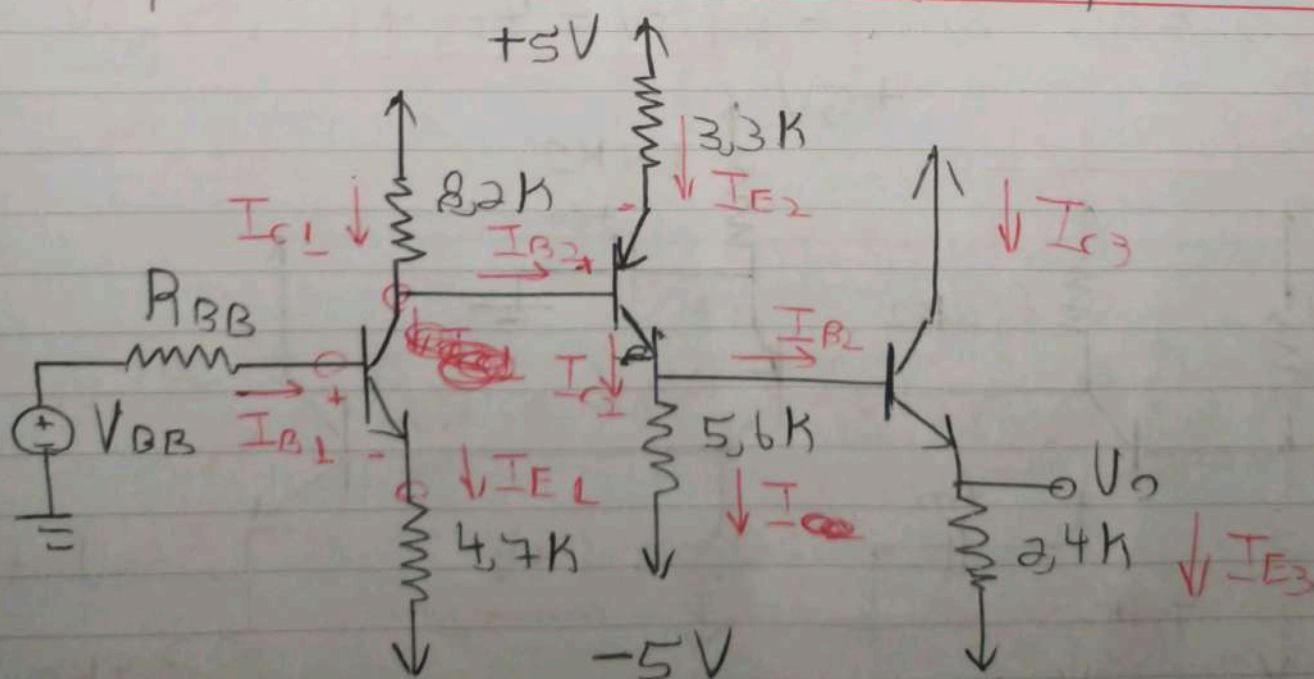 +5V
3,3K
I_E2
8,2K
I_C1
I_B2
I_C3
R_BB
I_B2
I_C2
+
-
V_BB
I_B1
+
-
I_E1
5,6K
I
V_o
4,7K
2,4K
I_E3
-5V